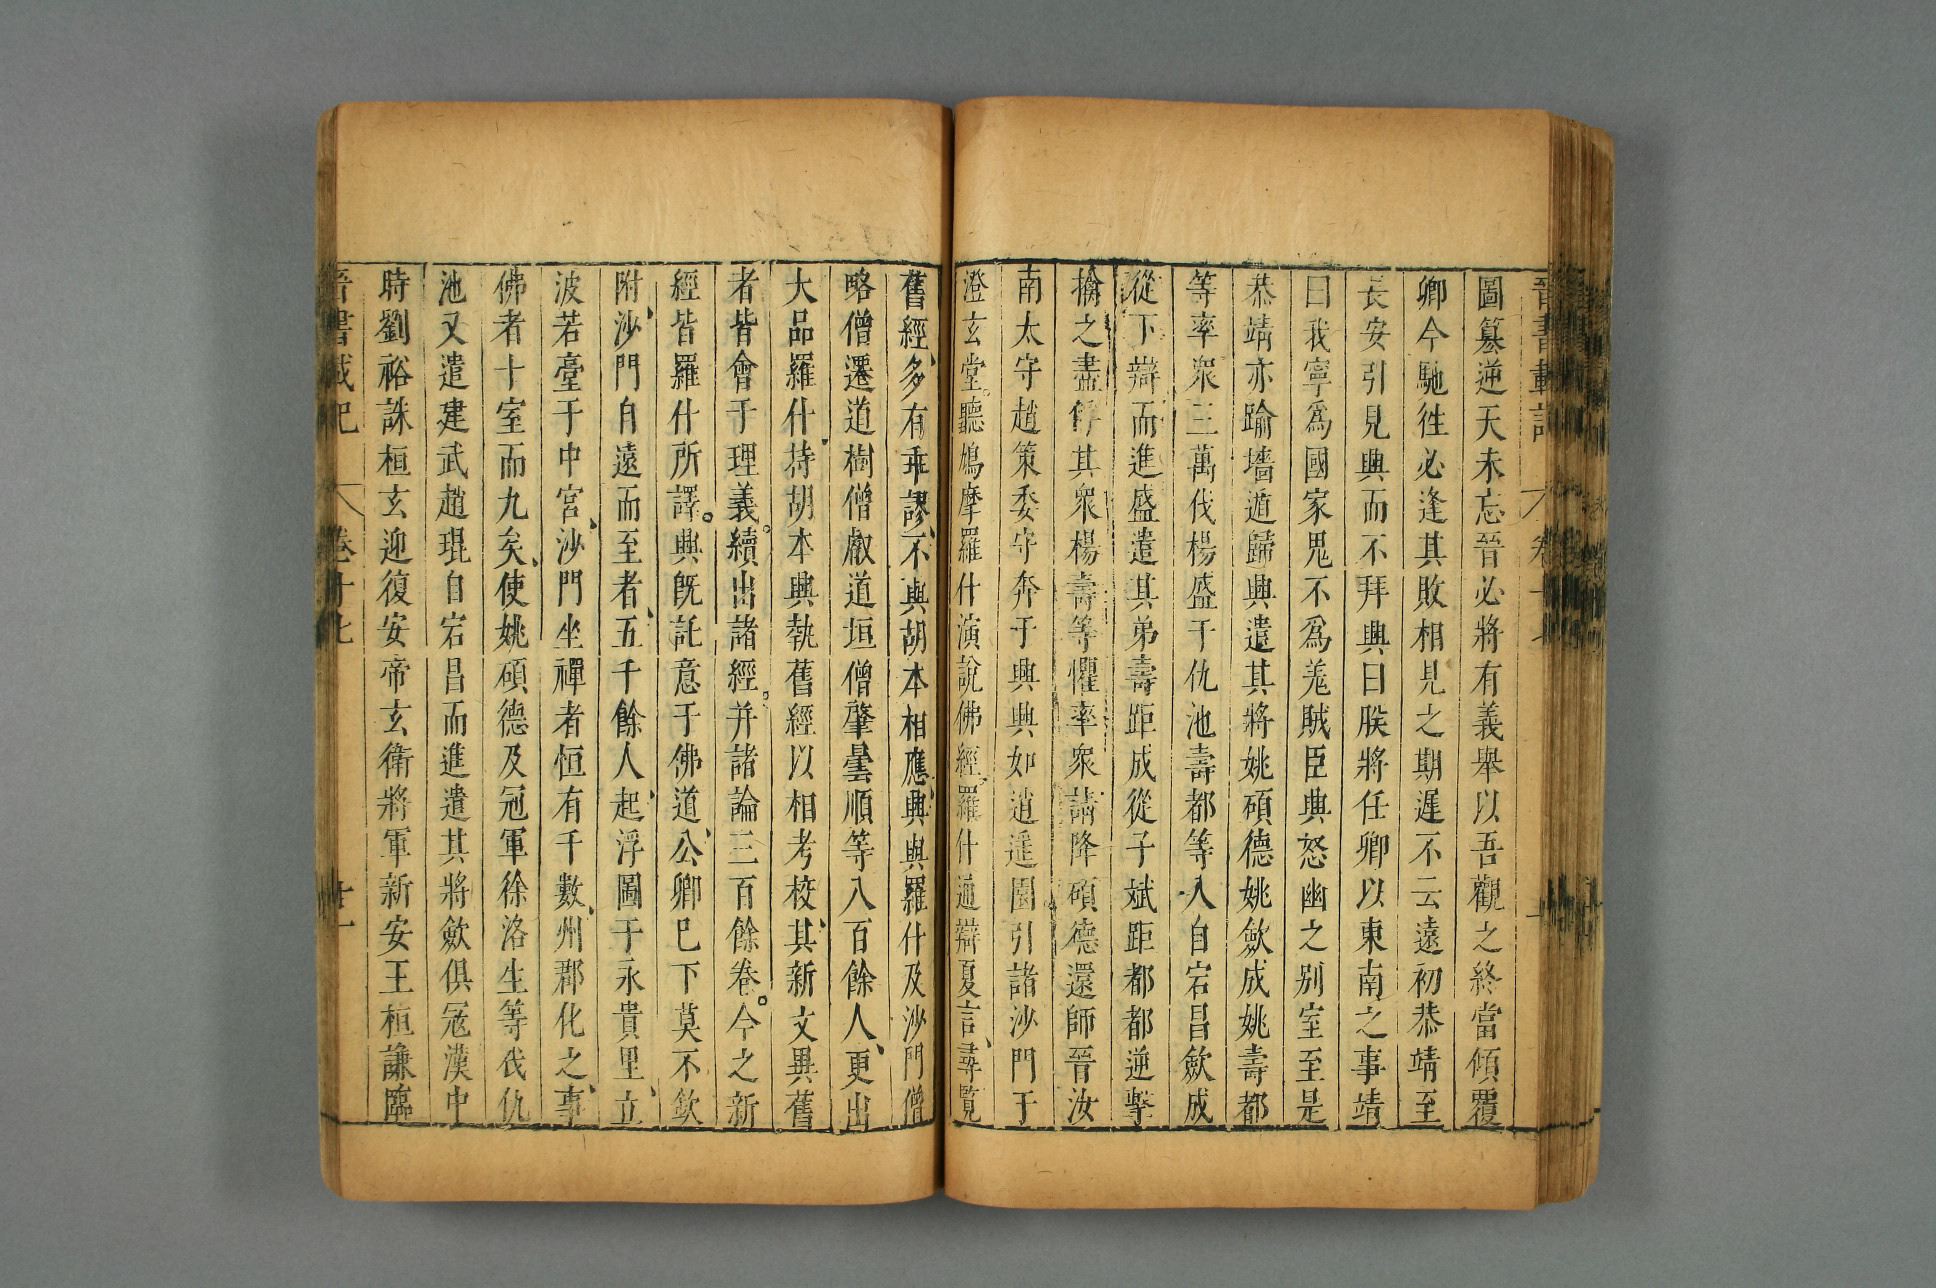 晉書載記　卷十七
圖簒逆天未忘晉必將有義舉以吾觀之終當傾覆
卿今馳徃必逢其敗相見之期遲不云遠初恭靖至
長安引見興而不拜興曰朕將任卿以東南之事靖
曰我寧爲國家鬼不爲羗賊臣興怒幽之别室至是
恭靖亦踰墻遁歸興遣其將姚碩德姚斂成姚壽都
等率衆三萬伐楊盛于仇池壽都等入自宕昌斂成
從下辯而進盛遣其弟壽距成從子斌距都都逆擊
擒之盡俘其衆楊壽等懼率衆請降碩德還師晉汝
南太守趙策委守奔于興興如逍遥園引諸沙門于
澄玄堂。聽鳩摩羅什演說佛經、羅什通辯夏言、尋覧
舊經、多有乖謬、不與胡本相應、興與羅什及沙門僧
略僧遷道樹僧叡道垣僧肇曇順等八百餘人、更出
大品羅什持胡本興執舊經以相考校、其新文異舊
者皆會于理義。續出諸經。并諸論三百餘卷。今之新
經皆羅什所譯。興旣託意于佛道、公卿巳下莫不欽
附、沙門自遠而至者、五千餘人、起浮圖于永貴里、立
波若臺于中宮、沙門坐禪者恒有千數、州郡化之、事
佛者十室而九矣、使姚碩德及冠軍徐洛生等伐仇
池又遣建武趙琨自宕昌而進遣其將斂俱冦漢中
時劉裕誅桓玄迎復安帝玄衛將軍新安王桓謙臨
晋書載記　卷十七　廿一